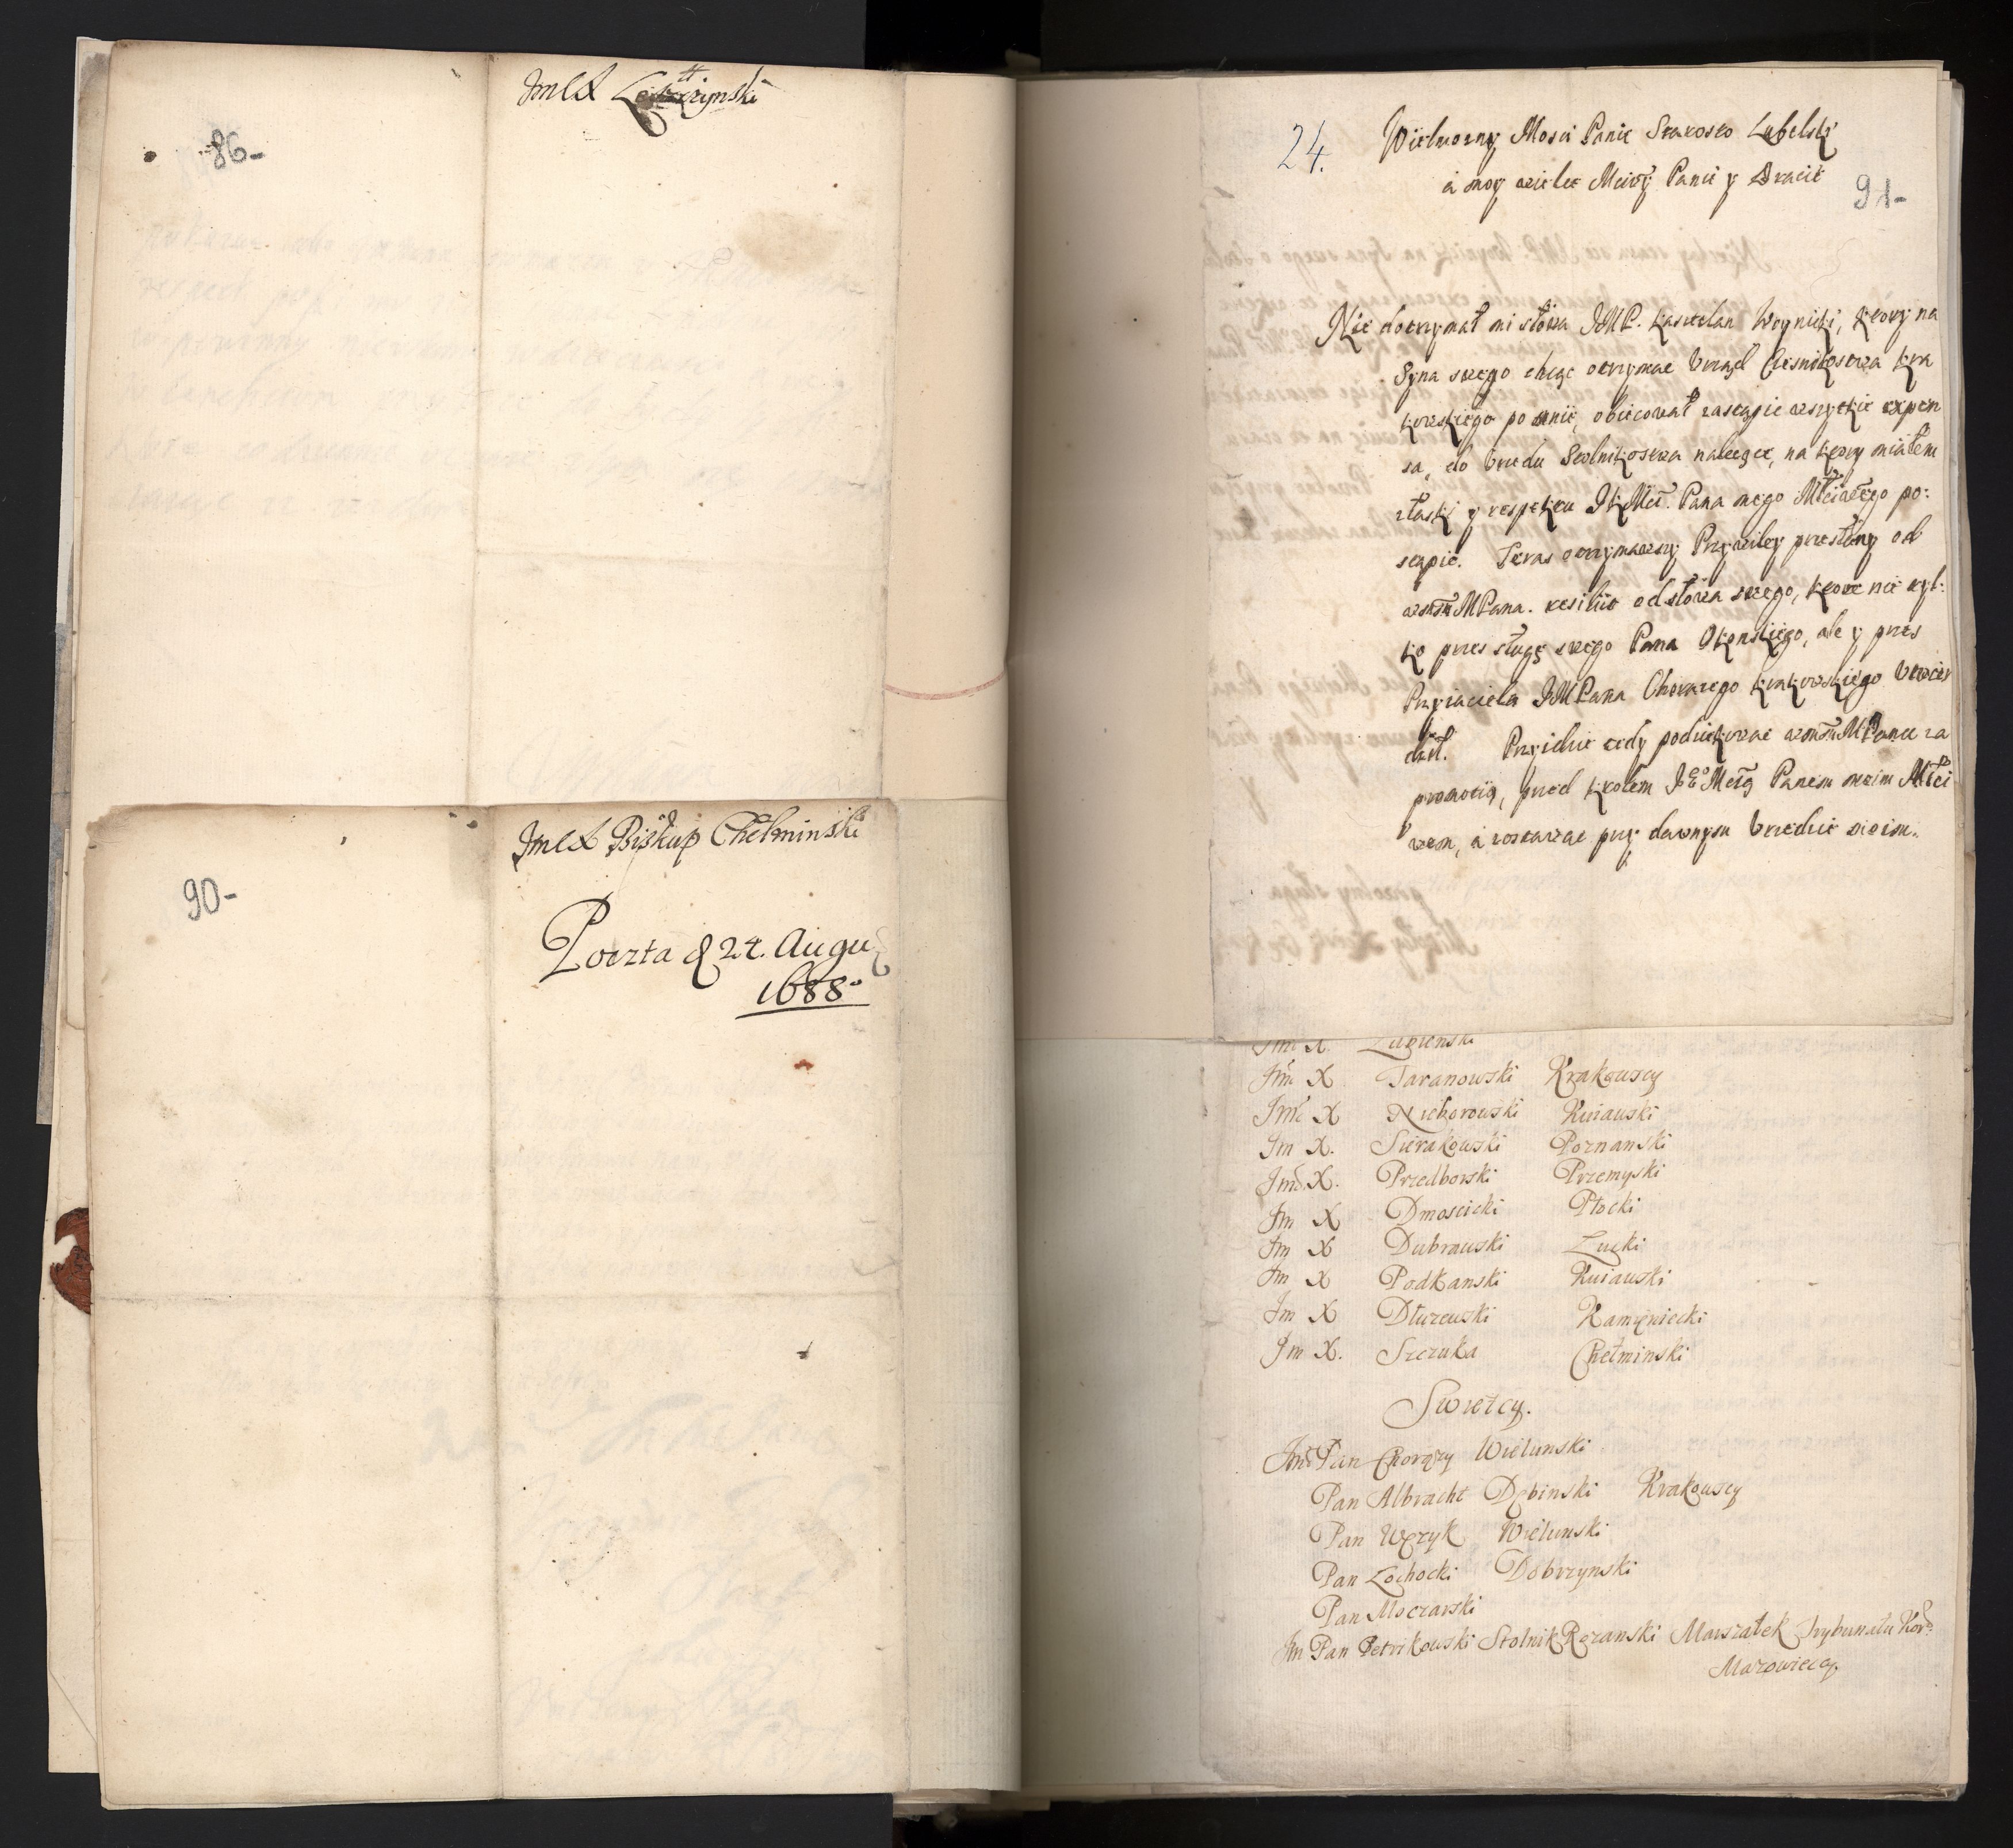 86-
90-
Poczta d 24. Augu
1688
Jmć X Biskup Chełminski
24.
91-
Wielmozny Mosci Panie Starosto Lubelski
a moy wielce Mciwy Panie y Bracie
Nie dotrzymał mi słowa JMP. Kasztelan Woynicki, ktory na
Syna swego chcąc otrzymac Vrząd Czesnikostwa Kra
kowskiego po mnie, obiecował zastąpic wszytkie expen
sa, do Vrzedu Stolnikostwa należące, na ktory miałem
z łaski y respektu JKMci. Pana mego Mściwego po:
stąpic. Teraz otrzymawszy Przywiley przesłany od
MPana. resiliit od słowa swego, ktore nie tyl:
ko przez sługę swego Pana Okonskiego, ale y przez
Przyiaciela JMPana Chorazego Krakowskiego
dził. Przyidzie tedy podziekowac MPanu za
promotią, przed Krolem Panem moim Mści
wem, a zostawac przy dawnym Vrzedzie moim.
Jmć X. Lubienski
Jmć X Taranowski Krakowscy
Jmć X Nieborowski Kuiawski
Jm X. Sierakowski Poznanski
Jmć X. Przedborski Przemyski
Jm X Dmoscicki Płocki
Jm X Dubrawski Łucki
Jm X Podkanski Kuiawski
Jm X Dłuzewski Kamięniecki
Jm X. Szczuka Chełminski
Swietcy.
Jmć Pan Chorąży Wielunski
Pan Albracht Dębinski Krakowscy
Pan Węzyk Wielunski
Pan Łochocki Dobrzynski
Pan Moczarski
Jm Pan Petrikowski Stolnik Rozanski Marszałek Trybunału Kor:
Mazowieccy.